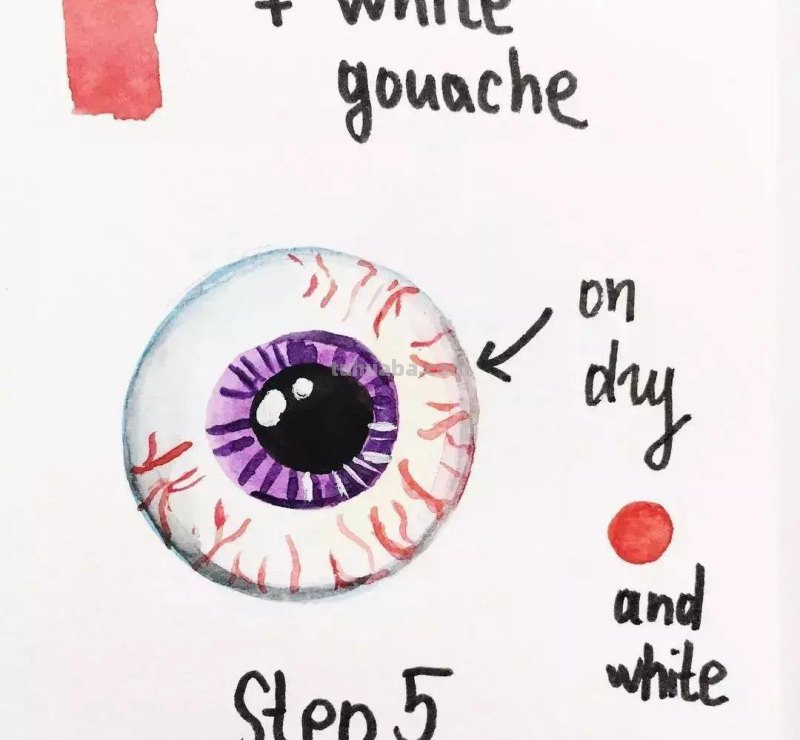 + white
gouache
on
dry
and
white
Step 5